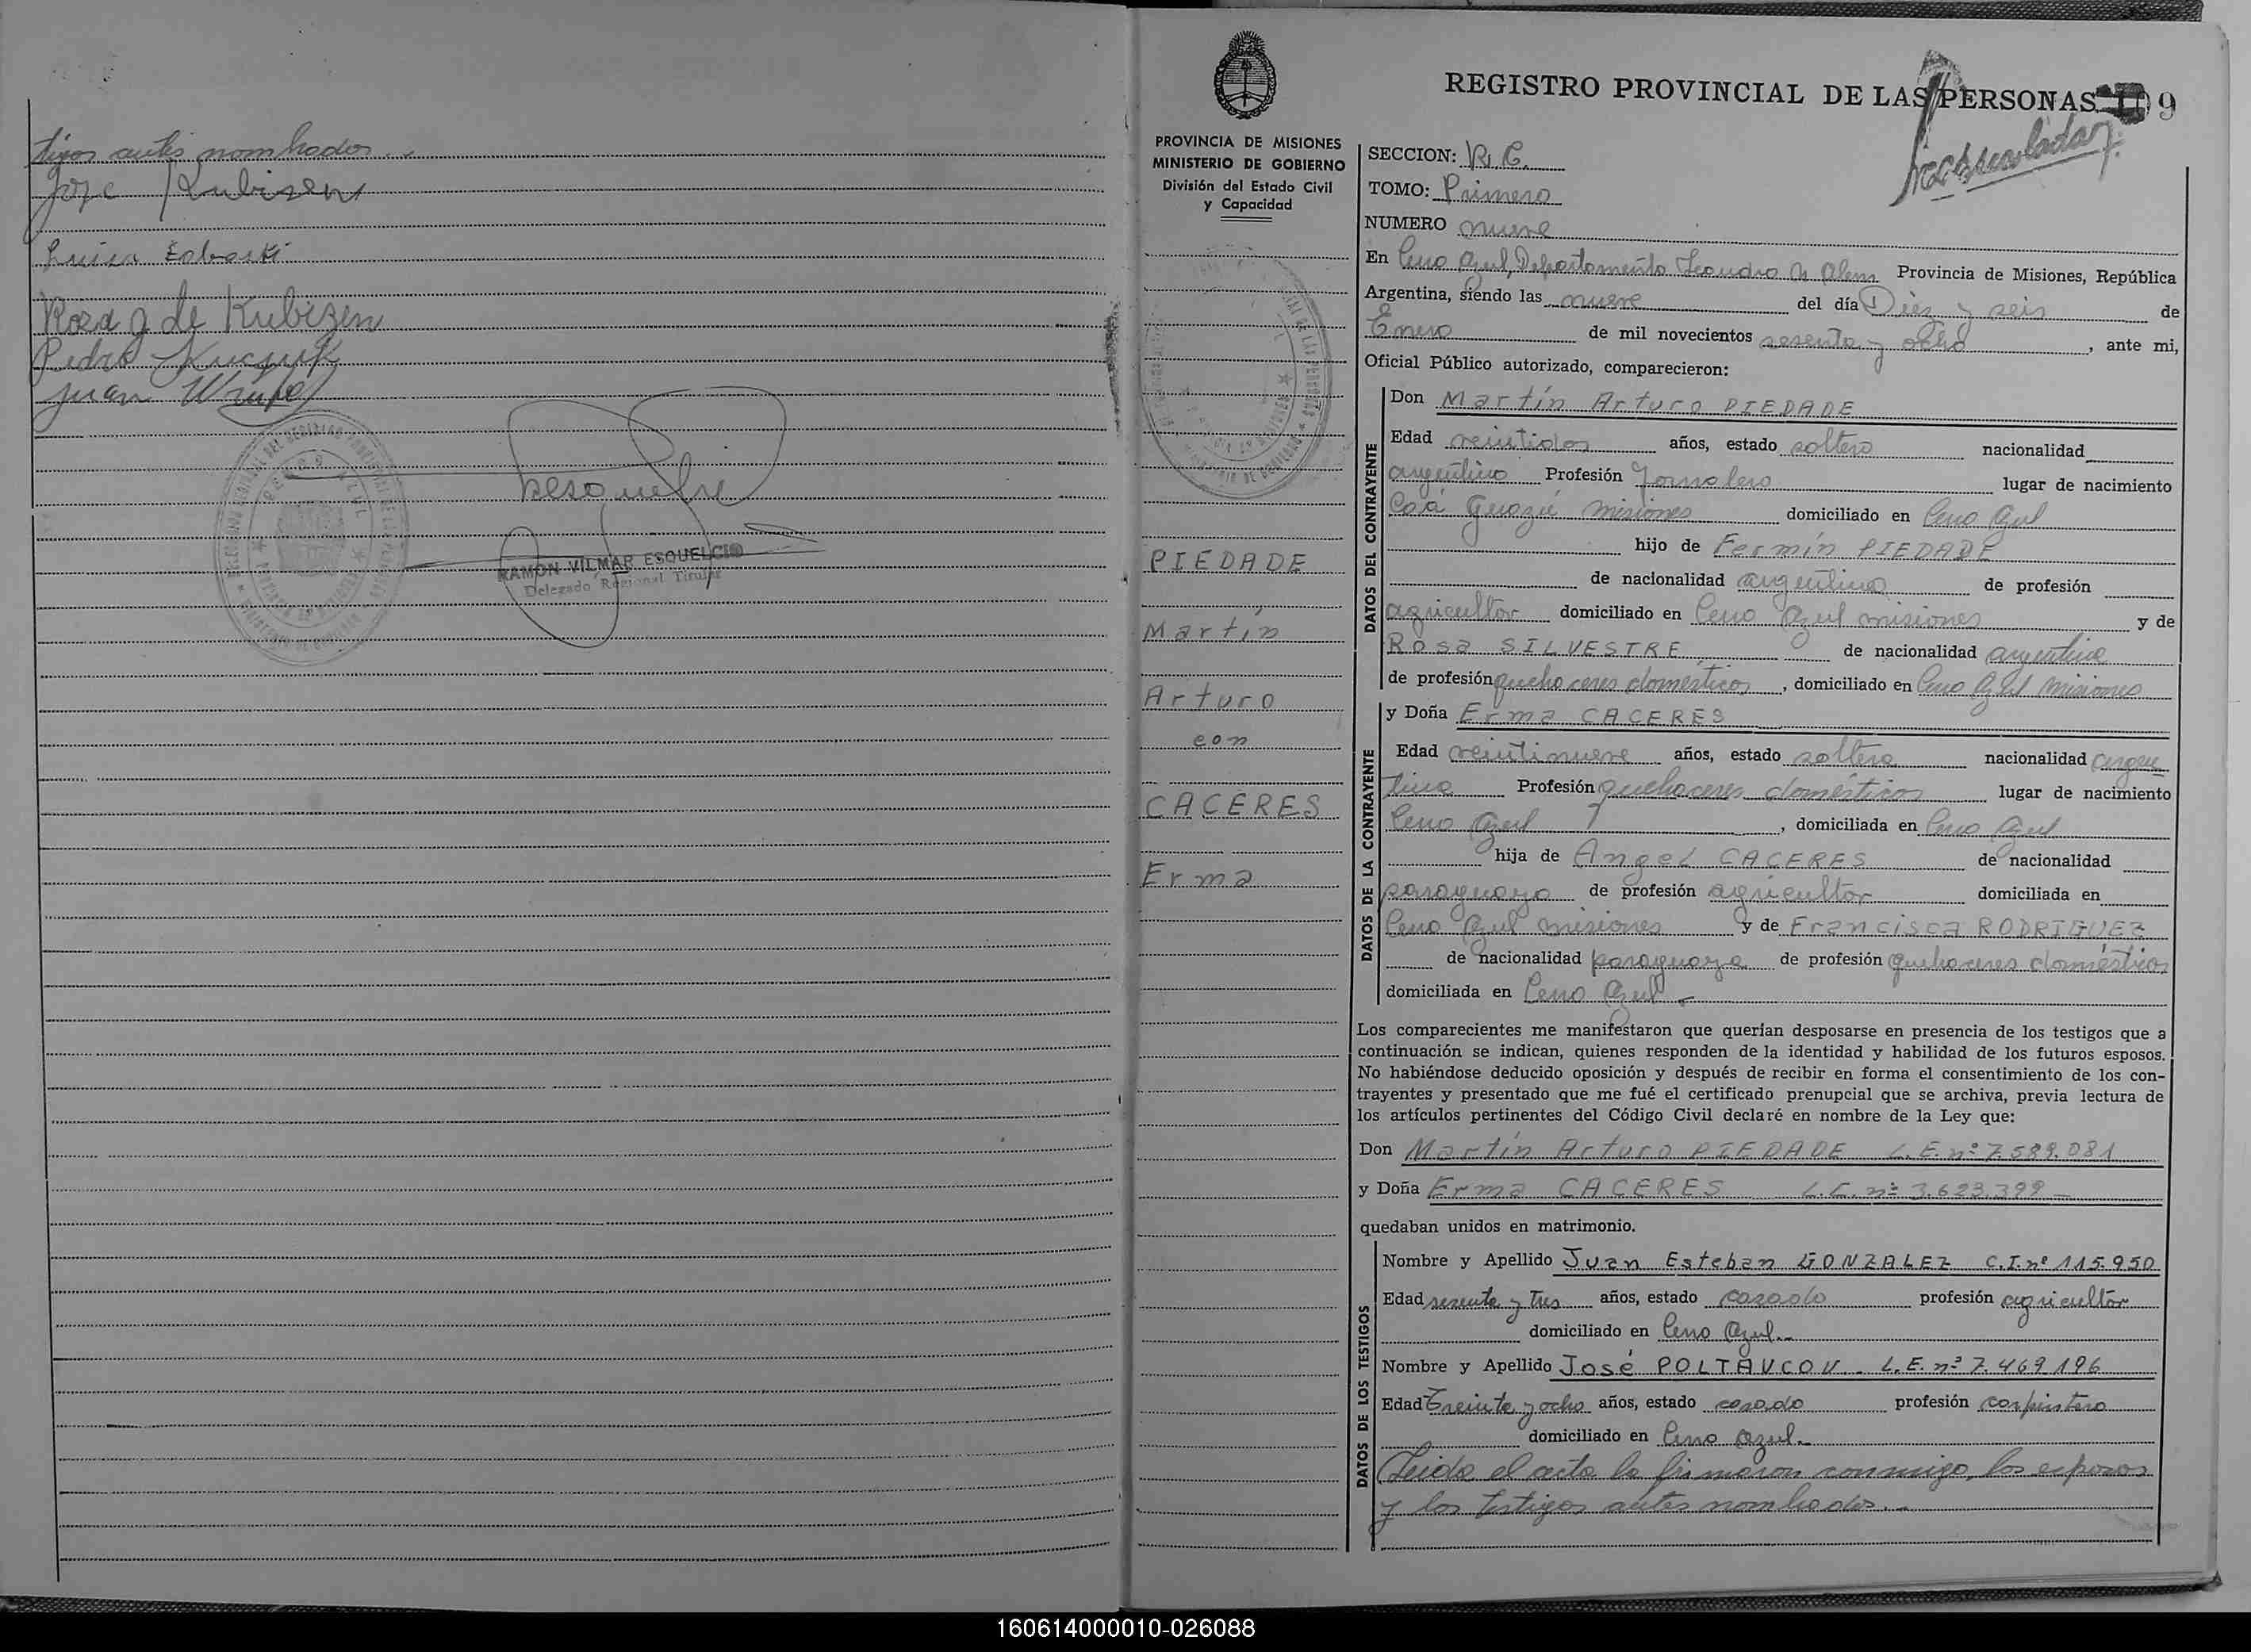 tigos antes nombrados.-
José Kubisen
Luisa
Rosa G de Kubizen
Pedro
Juan
RAMON VILMAR ESQUELCIO
Delegado Regional Titular
REGISTRO PROVINCIAL DE LAS PERSONAS 9
PROVINCIA DE MISIONES
MINISTERIO DE GOBIERNO
División del Estado Civil
y Capacidad
PIEDADE
Martín
Arturo
con
CACERES
Erma
SECCION: R. C.
TOMO: Primero
NUMERO nueve
En Cerro Azul, Departamento Leandro N Alem Provincia de Misiones, República
Argentina, siendo las nueve del día Diez y seis de
Enero de mil novecientos sesenta y ocho, ante mi,
Oficial Público autorizado, comparecieron:
DATOS DEL CONTRAYENTE
Don Martín Arturo PIEDADE
Edad veintidos años, estado soltero nacionalidad
argentino Profesión Jornalero lugar de nacimiento
Caá Guazú Misiones domiciliado en Cerro Azul
hijo de Fermín PIEDADE
de nacionalidad argentino de profesión
agricultor domiciliado en Cerro Azul misiones y de
Rosa SILVESTRE de nacionalidad argentina
de profesión quehaceres domésticos, domiciliado en Cerro Azul Misiones
DATOS DE LA CONTRAYENTE
y Doña Erma CACERES
Edad veintinueve años, estado soltera nacionalidad argen
tina Profesión quehaceres domésticos lugar de nacimiento
Cerro Azul, domiciliada en Cerro Azul
hija de Angel CACERES de nacionalidad
paraguayo de profesión agricultor domiciliada en
Cerro Azul misiones y de Francisca RODRIGUEZ
de nacionalidad paraguaya de profesión quehaceres domésticos
domiciliada en Cerro Azul -
Los comparecientes me manifestaron que querían desposarse en presencia de los testigos que a
continuación se indican, quienes responden de la identidad y habilidad de los futuros esposos.
No habiéndose deducido oposición y después de recibir en forma el consentimiento de los con-
trayentes y presentado que me fué el certificado prenupcial que se archiva, previa lectura de
los artículos pertinentes del Código Civil declaré en nombre de la Ley que:
Don Martín Arturo PIEDADE L.E. nº 7.589.081
y Doña Erma CACERES L.C. nº 3.623.399 -
quedaban unidos en matrimonio.
DATOS DE LOS TESTIGOS
Nombre y Apellido Juan Esteban GONZALEZ C.I. nº 115.950
Edad sesenta y tres años, estado casado profesión agricultor
domiciliado en Cerro Azul.-
Nombre y Apellido José POLTAVCOV.- L.E. nº 7.469.196
Edad Treinta y ocho años, estado casado profesión carpintero
domiciliado en Cerro Azul.-
Leida el acta la firmaron conmigo, los esposos
y los testigos antes nombrados.-
160614000010-026088